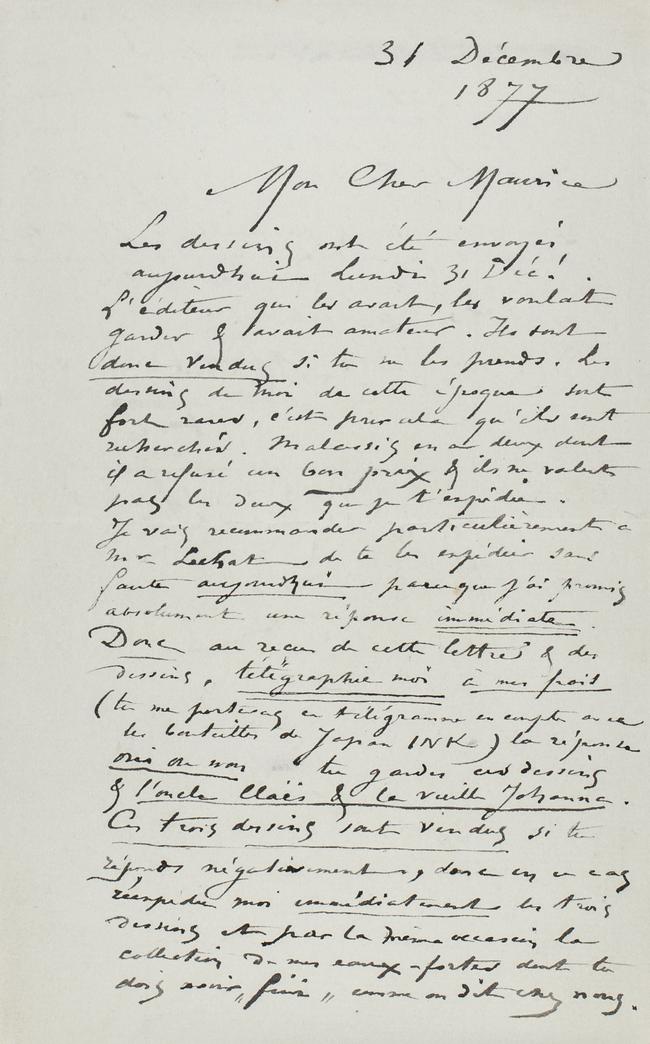 31 Décembre
1877
Mon Cher Maurice
Les dessins ont été envoyés
aujourdhui Lundi 31 Déc!.
L'éditeur qui les avait, les voulait
garder & avait amateur. Ils sont
donc vendus si tu ne les prends. Les
dessins de moi de cette époque sont
fort rares, c'est pour cela qu'ils sont
recherchés. Malassis en a deux dont
il a refusé un bon prix & ils ne valent
pas les deux que je t'expédie.
Je vais recommander particulièrement à
Mr Lechat de te les expédier sans
faute aujourdhui parceque j'ai promis
absolument une réponse immédiate.
Donc au reçu de cette lettre & des
dessins, télégraphie moi à mes frais
(tu me porteras ce télégramme en compte avec
les bouteilles de Japan INK) la réponse
oui ou non tu gardes ces dessins
& l'oncle Claës & la vieille Johanna.
Ces trois dessins sont vendus si tu
réponds négativement, donc en ce cas
réexpédie moi immédiatement les trois
dessins et par la même occasion la
collection de mes eaux-fortes dont tu
dois avoir „fini„ comme on dit chez nous.